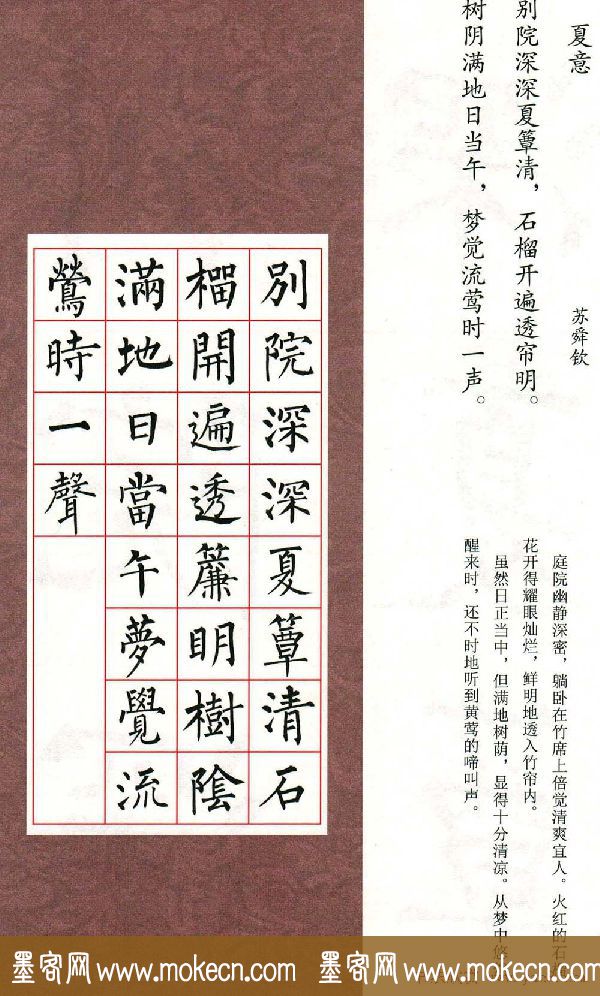 夏意
苏舜钦
别院深深夏簟清，石榴开遍透帘明。
树阴满地日当午，梦觉流莺时一声。
庭院幽静深密，躺卧在竹席上倍觉清爽宜人。火红的石
花开得耀眼灿烂，鲜明地透入竹帘内。
虽然日正当中，但满地树荫，显得十分清凉。从梦中
醒来时，还不时地听到黄莺的啼叫声。
別院深深夏簟清石
榴開遍透簾明樹陰
滿地日當午夢覺流
鶯時一聲
墨客网 www.mokecn.com 墨客网 www.mokecn.com